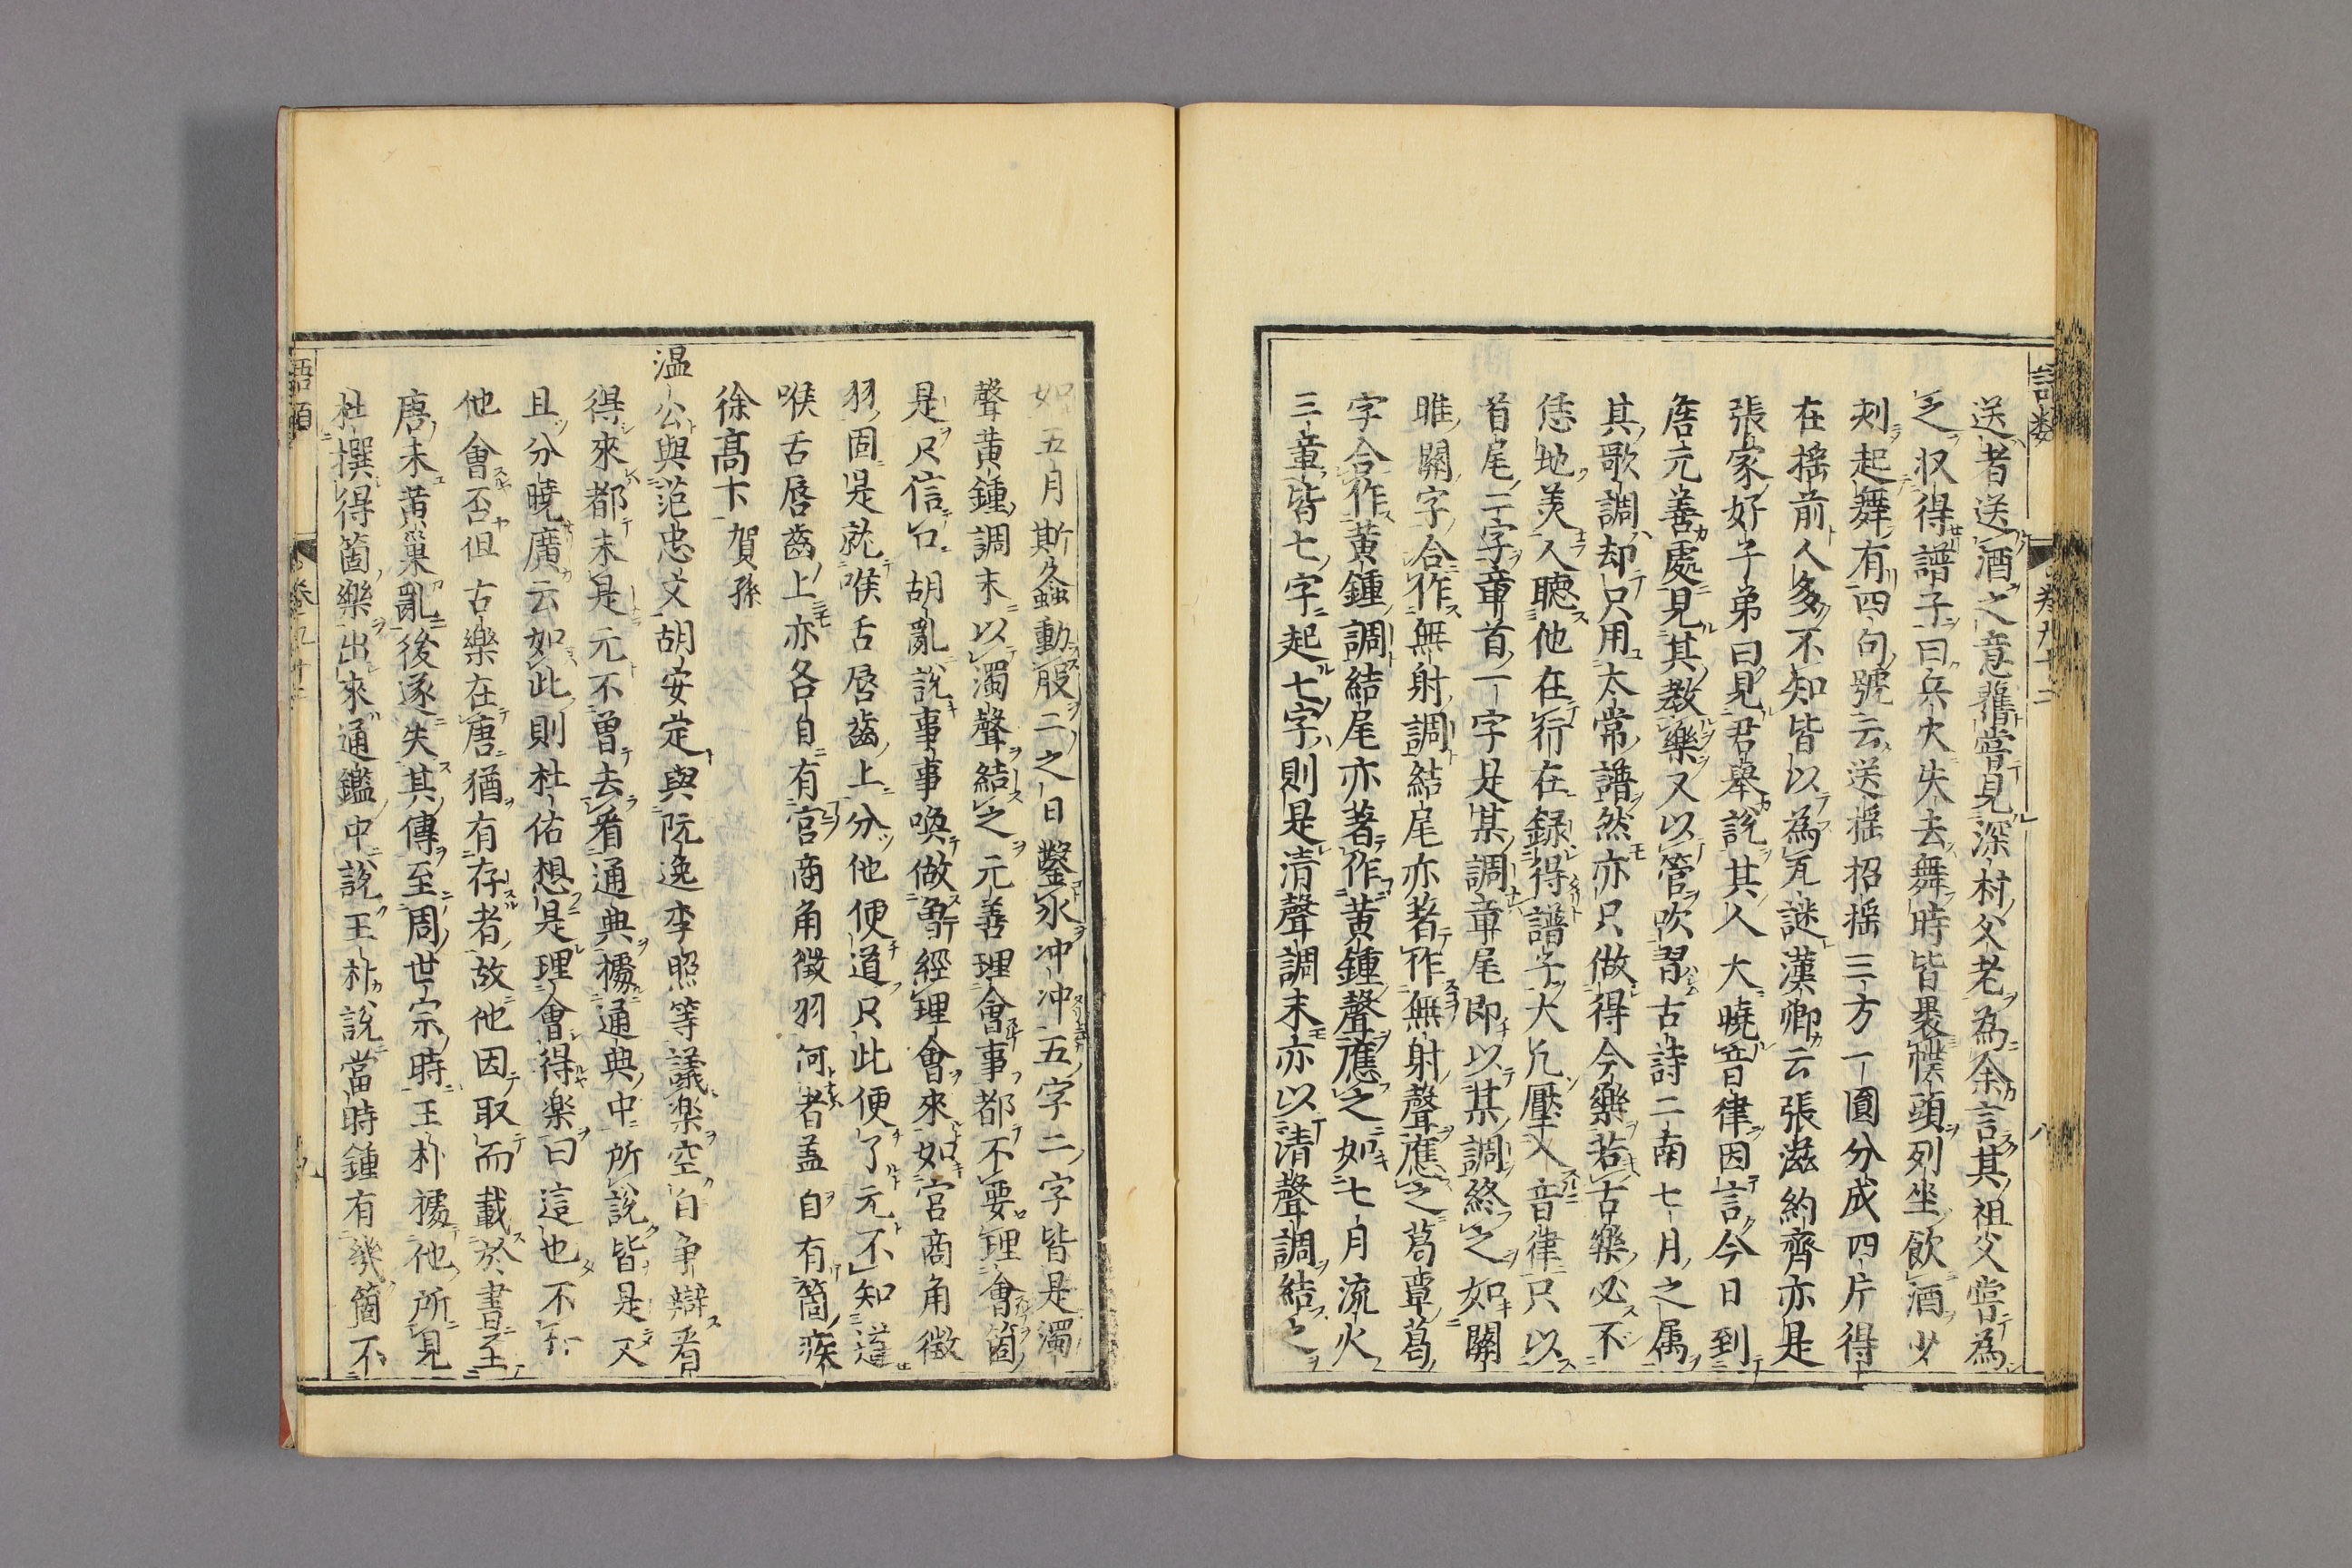 語類
卷九十二
八
送者送酒之意舊嘗見深村父老為余言其祖父嘗為
之収得譜子曰兵火失去舞時皆裹幞頭列坐飲酒少
刻起舞有四句號云送揺招揺三方一圓分成四片得
在揺前人多不知皆以為瓦謎漢卿云張滋約齊亦是
張家好子弟曰見君舉說其人大曉音律因言今日到
詹元善處見其教樂又以管吹習古詩二南七月之属
其歌調却只用太常譜然亦只做得今樂若古樂必不
恁地美人聽他在行在録得譜子大凡壓入音律只以
首尾二字章首一字是某調章尾即以某調終之如關
雎關字合作無射調結尾亦著作無射聲應之葛覃葛
字合作黄鍾調結尾亦著作黄鍾聲應之如七月流火
三章皆七字起七字則是清聲調末亦以清聲調結之
如五月斯螽動股二之日鑿氷冲冲五字二字皆是濁
聲黄鍾調末以濁聲結之元善理會事都不要理會箇
是只信口胡亂說事事喚做魯經理會來如宮商角徵
羽固是就喉舌唇齒上分他便道只此便了元不知道
喉舌唇齒上亦各自有宮商角徵羽何者盖自有箇疾
徐髙下賀孫
温公與范忠文胡安定與阮逸李照等議楽空自争辯看
得來都未是元不曽去看通典據通典中所說皆是又
且分曉廣云如此則杜佑想是理會得楽曰這也不知
他會否但古樂在唐猶有存者故他因取而載於書至
唐末黄巢亂後遂失其傳至周世宗時王朴據他所見
杜撰得箇樂出來通鑑中說王朴說當時鍾有幾箇不
語類
卷九十二
九